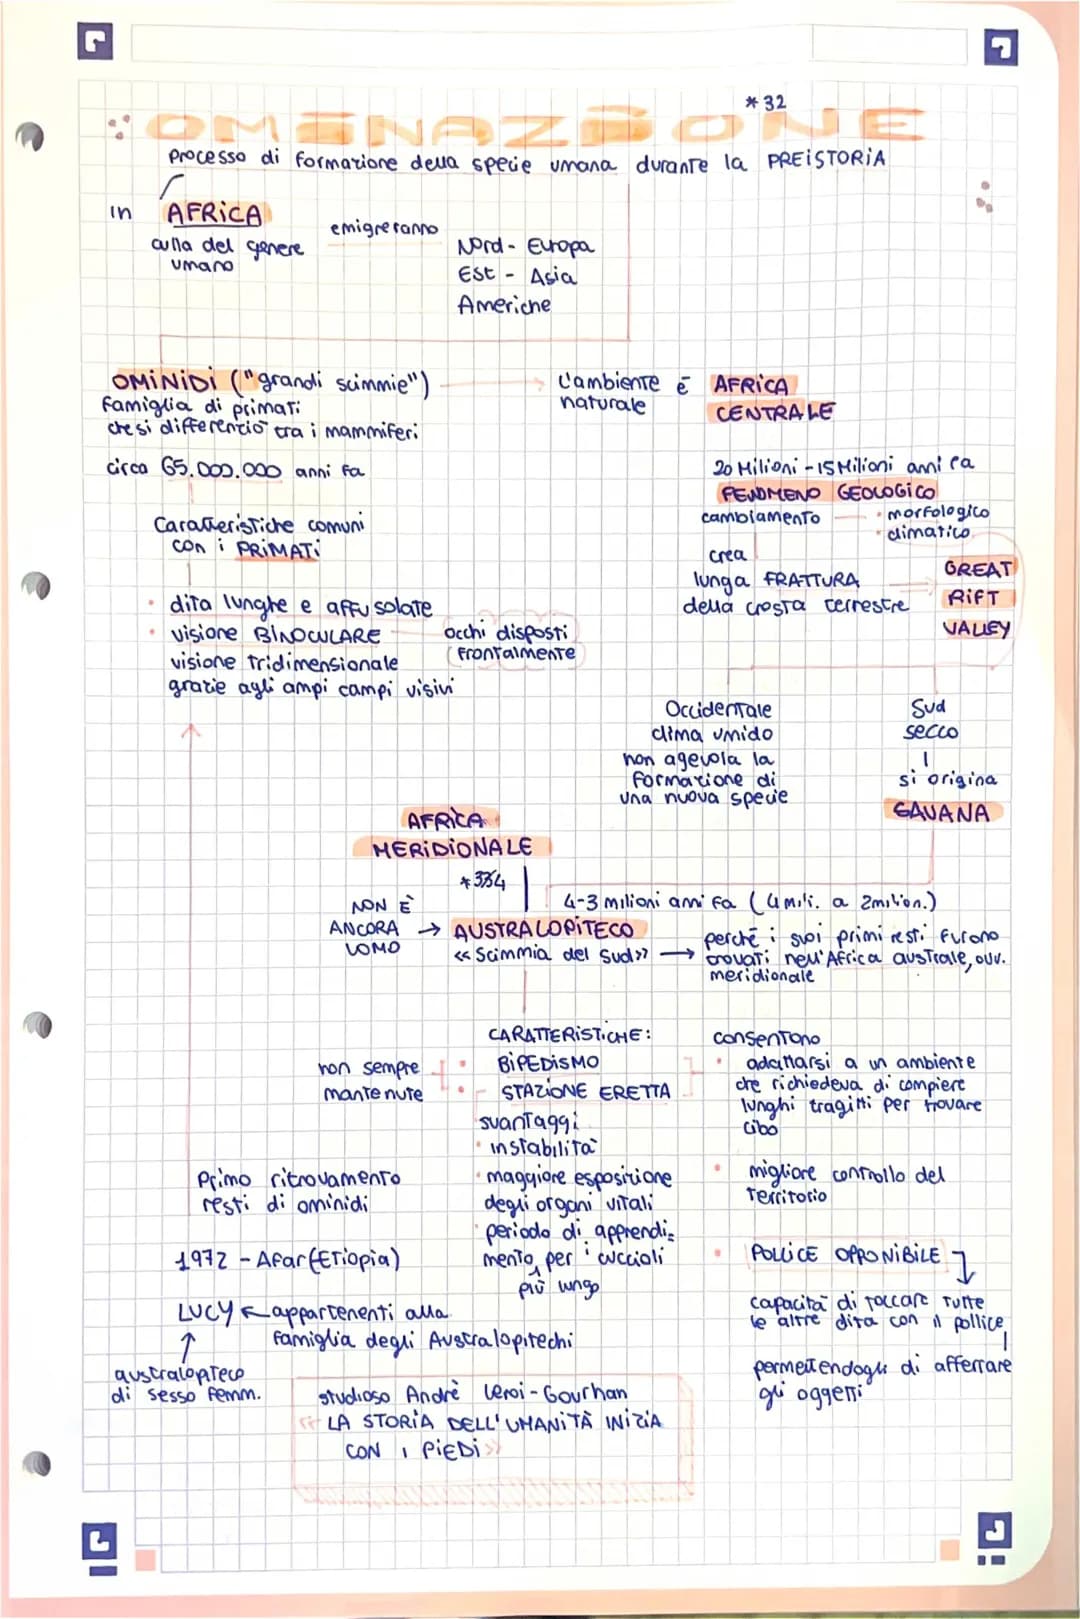 *32
OMINAZIONE
Processo di formazione della specie umana durante la PREISTORIA
in AFRICA
culla del genere
umano
emigreranno
Nord - Europa
Est - Asia
Americhe
OMINIDI ("grandi scimmie")
famiglia di primati
che si differenziò tra i mammiferi
circa 65.000.000 anni fa
L'ambiente è AFRICA
naturale CENTRALE
20 Milioni - 15 Milioni anni fa
FENOMENO GEOLOGICO
cambiamento
• morfologico
• climatico
crea
lunga FRATTURA
della crosta terrestre
GREAT
RIFT
VALLEY
Caratteristiche comuni
con i PRIMATI
• dita lunghe e affusolate
• visione BINOCULARE
occhi disposti
frontalmente
visione tridimensionale
grazie agli ampi campi visivi
Occidentale
clima umido
non agevola la
formazione di
una nuova specie
Sud
secco
si origina
SAVANA
AFRICA
MERIDIONALE
*334
4-3 milioni anni fa (4 mili. a 2 milion.)
NON È
ANCORA
UOMO
→ AUSTRALOPITECO
«Scimmia del Sud» →
perché i suoi primi resti furono
trovati nell'Africa australe, ovv.
meridionale
CARATTERISTICHE:
• BIPEDISMO
• STAZIONE ERETTA
non sempre
mantenute
svantaggi
• instabilità
• maggiore esposizione
degli organi vitali
• periodo di apprendi=
mento per i cuccioli
più lungo
consentono
• adattarsi a un ambiente
che richiedeva di compiere
lunghi tragitti per trovare
cibo
• migliore controllo del
territorio
• POLLICE OPPONIBILE
capacità di toccare tutte
le altre dita con il pollice
permettendogli di afferrare
gli oggetti
Primo ritrovamento
resti di ominidi
1972 - Afar (ETiopia)
LUCY ← appartenenti alla
famiglia degli Australopitechi
australopiteco
di sesso femm.
studioso Andrè Leroi-Gourhan
« LA STORIA DELL'UMANITÀ INIZIA
CON I PIEDI »